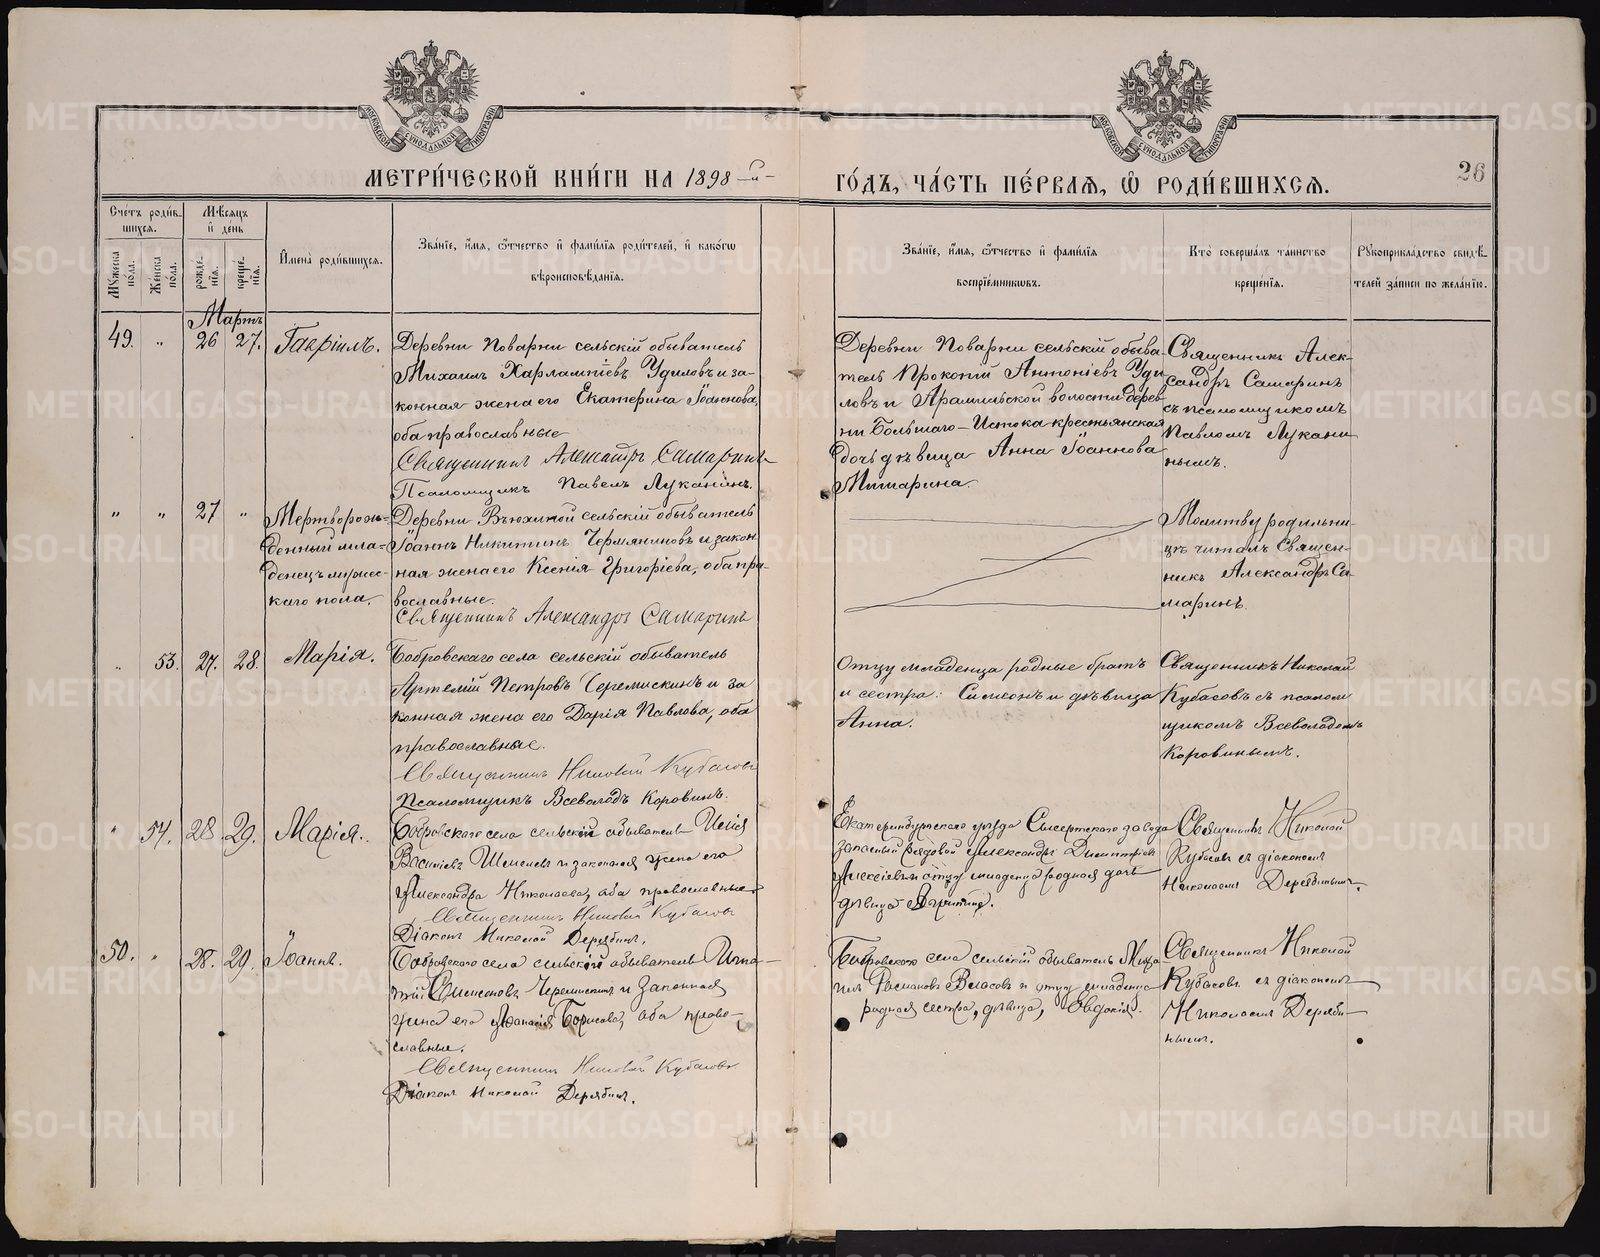 МОСКОВСКОЙ СѴНОДАЛЬНОЙ ТИПОГРАФІИ
МОСКОВСКОЙ СѴНОДАЛЬНОЙ ТИПОГРАФІИ
МЕТРИ́ЧЕСКОЙ КНИ́ГИ НА 1898-й
ГО́ДЪ, ЧА́СТЬ ПЕ́РВАЯ, Ѡ҆ РОДИ́ВШИХСЯ.
26
Сче́тъ роди́в-
шихся.
Му́жеска
по́ла.
Же́нска
по́ла.
Мѣ́сяцъ
и҆ де́нь
рожде́-
нїя.
креще́-
нїя.
И҆мена̀ роди́вшихся.
Зва́нїе, и҆́мя, ѻ҆́тчество и҆ фами́лїя роди́телей, и҆ како́гѡ
вѣроисповѣ́данїя.
Зва́нїе, и҆́мя, ѻ҆́тчество и҆ фами́лїя
воспрїе́мниковъ.
Кто̀ соверша́лъ та́инство
креще́нїя.
Рꙋкоприкла́дство свидѣ́-
телей за́писи по жела́нїю.
Мартъ
49. " 26 27. Гавріилъ.
Деревни Поварни сельскій обыватель
Михаилъ Харлампіевъ Удиловъ и за-
конная жена его Екатерина Іоаннова,
оба православные
Священникъ Александръ Самаринъ
Псаломщикъ Павелъ Луканинъ.
Деревни Поварни сельскій обыва-
тель Прокопій Антоніевъ Уди
ловъ и Арамильской волости дерев
ни Большаго-Истока крестьянская
дочь дѣвица Анна Іоаннова
Митарина.
Священникъ Алек-
сандръ Самаринъ
съ псаломщикомъ
Павломъ Лукани
нымъ.
" " 27 "
Мертворож-
денный мла-
денецъ мужес-
каго пола.
Деревни Вьюхиной сельскій обыватель
Іоаннъ Никитинъ Чермяниновъ и закон
ная жена его Ксенія Григоріева, оба пра-
вославные.
Священникъ Александръ Самаринъ
Молитву родильни-
цѣ читалъ Священ-
никъ Александръ Са-
маринъ.
" 53. 27. 28. Марія.
Бобровскаго села сельскій обыватель
Артемій Петровъ Черемискинъ и за
конная жена его Дарія Павлова, оба
православные.
Священникъ Николай Кубасовъ
Псаломщикъ Всеволодъ Коровинъ.
Отцу младенца родные братъ
и сестра: Симеонъ и дѣвица
Анна.
Священникъ Николай
Кубасовъ съ псалом
щикомъ Всеволодомъ
Коровинымъ.
" 54. 28. 29. Марія.
Бобровскаго села сельскій обыватель
Василіевъ и законная жена его
Александра Николаева, оба православные.
Священникъ Николай Кубасовъ
Діаконъ Николай Дерябинъ.
Екатеринбургскаго уѣзда Сысертскаго завода
запасный рядовой Александръ Димитріевъ
Алексѣевъ и отцу младенца родная дочь
дѣвица
Священникъ Николай
Кубасовъ съ діакономъ
Николаемъ Дерябинымъ.
50. " 28. 29. Іоаннъ.
Бобровскаго села сельскій обыватель Игна-
тій Симеоновъ Черемискинъ и законная
жена его Афанасія Борисова, оба право-
славные.
Священникъ Николай Кубасовъ
Діаконъ Николай Дерябинъ.
Бобровскаго села сельскій обыватель Миха-
илъ Власовъ и отцу младенца
родная сестра, дѣвица, Евдокія.
Священникъ Николай
Кубасовъ съ діакономъ
Николаемъ Деряби-
нымъ.
METRIKI.GASO-URAL.RU